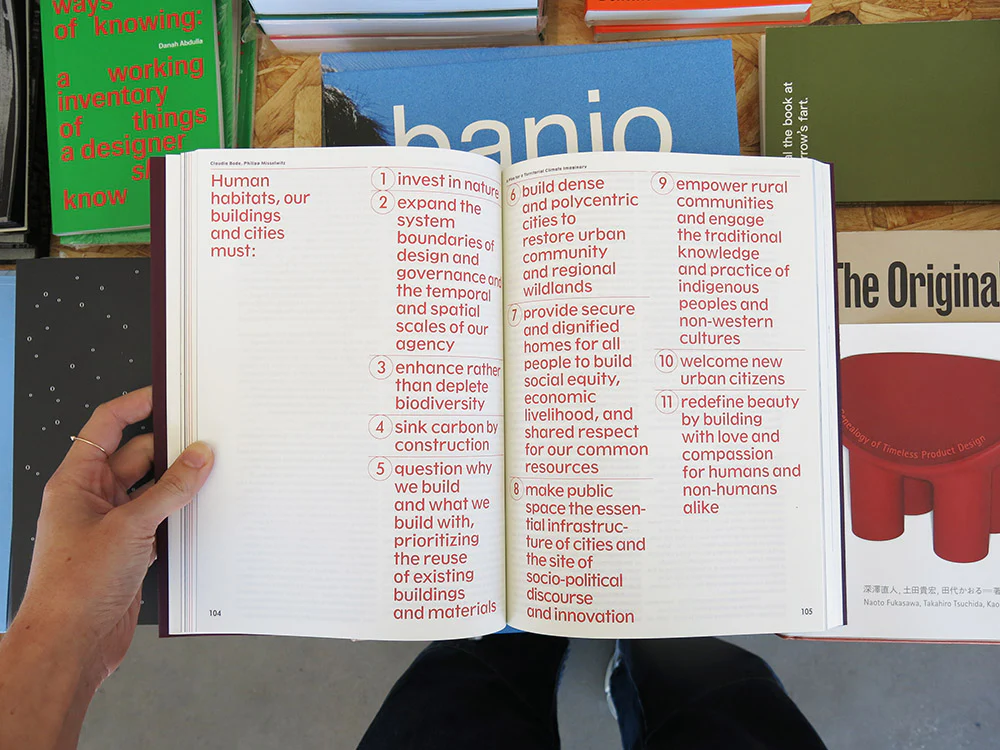 ways
of knowing:
Danah Abdulla
a working
inventory
of things
a designer
know
banjo
al the book at
row's fart.
Claudia Bode, Philipp Misselwitz
Human
habitats, our
buildings
and cities
must:
1 invest in nature
2 expand the
system
boundaries of
design and
governance and
the temporal
and spatial
scales of our
agency
3 enhance rather
than deplete
biodiversity
4 sink carbon by
construction
5 question why
we build
and what we
build with,
prioritizing
the reuse
of existing
buildings
and materials
104
for a Territorial Climate Imaginary
6 build dense
and polycentric
cities to
restore urban
community
and regional
wildlands
7 provide secure
and dignified
homes for all
people to build
social equity,
economic
livelihood, and
shared respect
for our common
resources
8 make public
space the essen-
tial infrastruc-
ture of cities and
the site of
socio-political
discourse
and innovation
9 empower rural
communities
and engage
the traditional
knowledge
and practice of
indigenous
peoples and
non-western
cultures
10 welcome new
urban citizens
11 redefine beauty
by building
with love and
compassion
for humans and
non-humans
alike
105
The Original
Genealogy of Timeless Product Design
深澤直人, 土田貴宏, 田代かおる＝著
Naoto Fukasawa, Takahiro Tsuchida, Kao